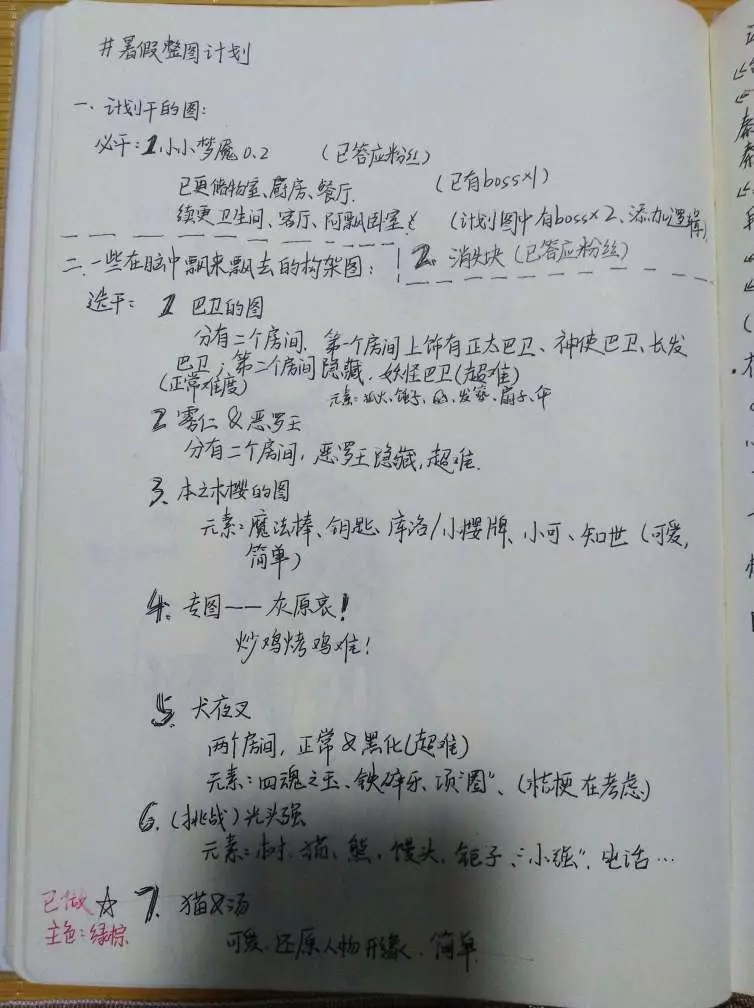 #暑假整图计划
一.计划干的图:
必干:1.小小梦魇0.2 (已答应粉丝)
已更储物室、厨房、餐厅. (已有boss×1)
续更卫生间、客厅、阿飘卧室 (计划图中有boss×2、添加逻辑)
2. 消失块(已答应粉丝)
二.一些在脑中飘来飘去的构架图:
选干: 1 巴卫的图
分有二个房间.第一个房间上饰有正太巴卫、神使巴卫、长发
巴卫;第二个房间隐藏.妖怪巴卫(超难)
(正常难度)
元素:狐火、 、发簪、扇子、
2 雾仁&恶罗王
分有二个房间,恶罗王隐藏,超难.
3. 木之本樱的图
元素:魔法棒、钥匙、库洛/小樱牌、小可、知世(可爱,
简单)
4. 专图——灰原哀!
炒鸡烤鸡难!
5. 犬夜叉
两个房间,正常&黑化(超难)
元素:四魂之玉、铁碎牙、项"圈"、(桔梗在考虑)
6.(挑战)光头强
元素:树.猫、熊.馒头、 "小强".电话…
已做☆ 7. 猫&汤
主色:绿棕
可爱.还原人物形象.简单